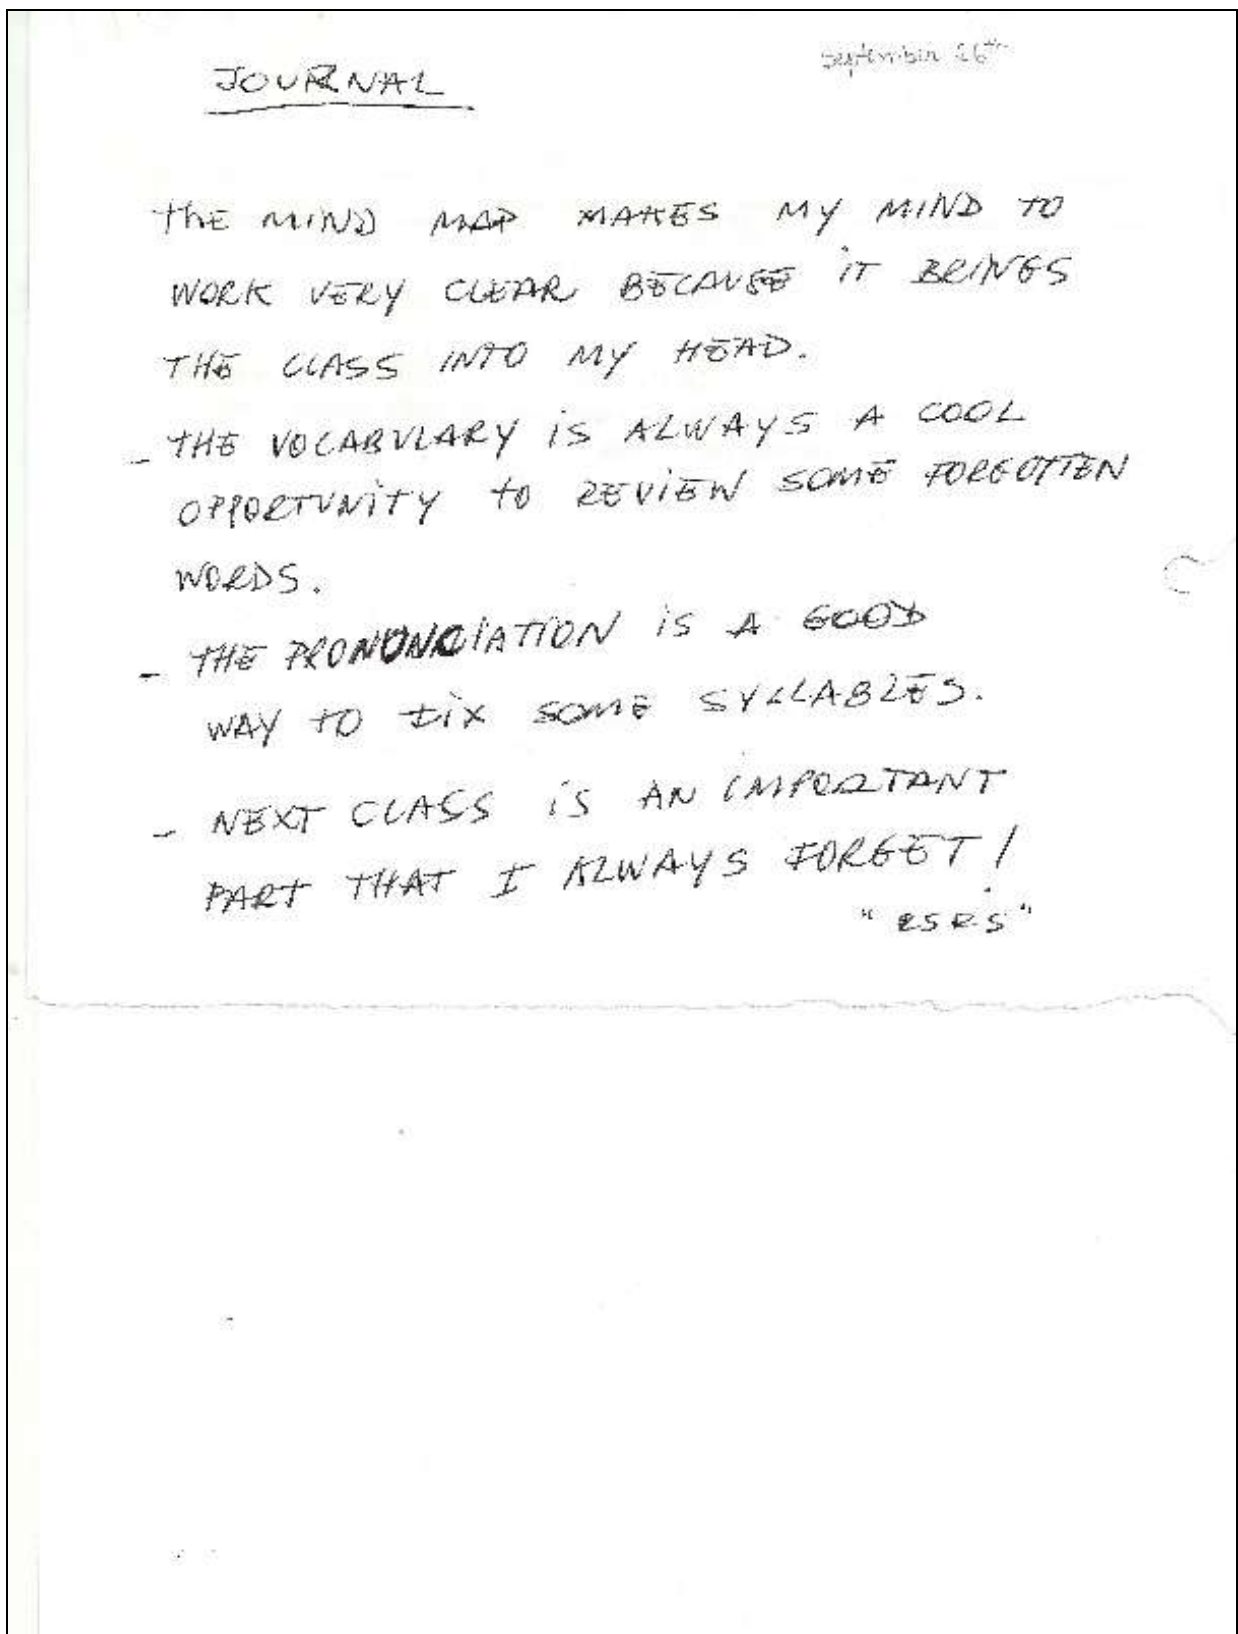 September 26th
JOURNAL
THE MIND MAP MAKES MY MIND TO
WORK VERY CLEAR BECAUSE IT BRINGS
THE CLASS INTO MY HEAD.
- THE VOCABULARY IS ALWAYS A COOL
OPPORTUNITY TO REVIEW SOME FORGOTTEN
WORDS.
- THE PRONUNCIATION IS A GOOD
WAY TO FIX SOME SYLLABLES.
- NEXT CLASS IS AN IMPORTANT
PART THAT I ALWAYS FORGET!